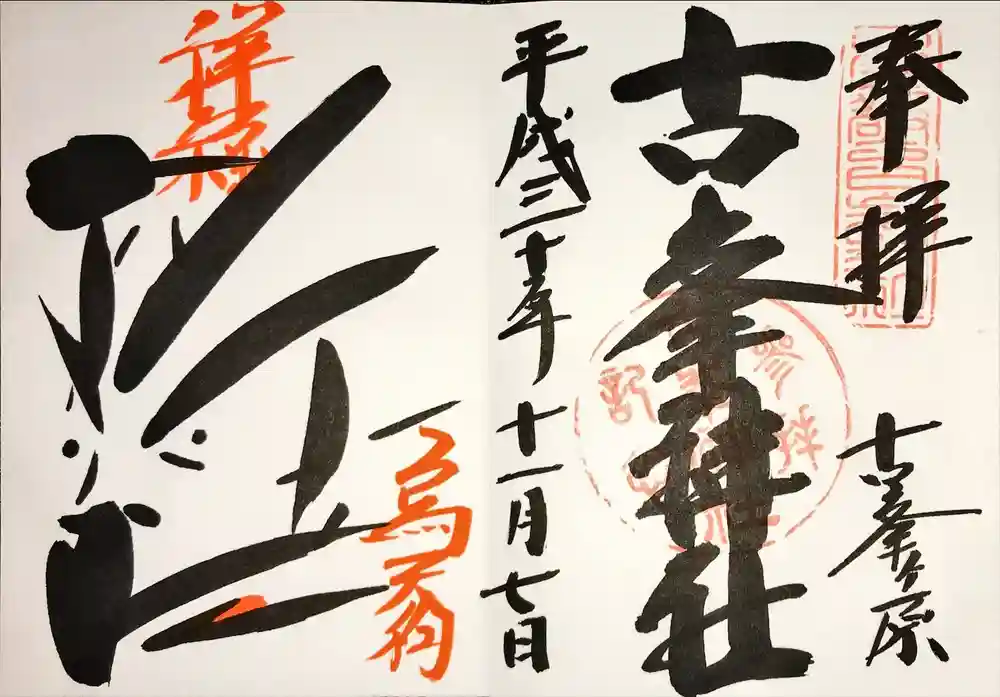 奉拝
古峯ヶ原
古峯神社
平成三十年十一月七日
烏天狗